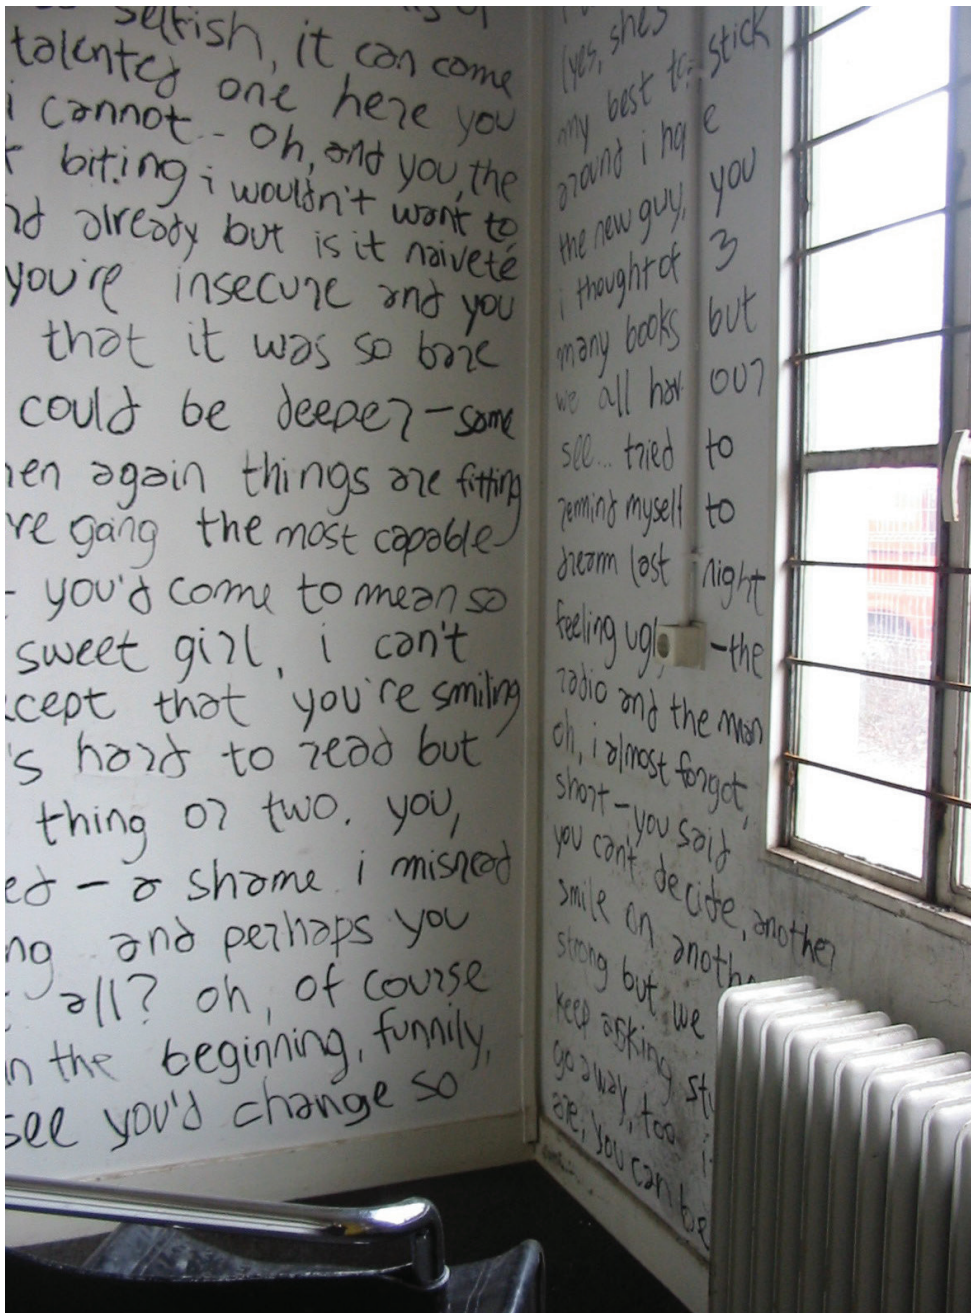 selfish, it can come
talented one here you
i cannot - oh, and you, the
biting i wouldn't want to
already but is it naiveté
you're insecure and you
that it was so bare
could be deeper - some
hen again things are fitting
re gang the most capable
- you'd come to mean so
sweet girl, i can't
cept that you're smiling
's hard to read but
thing or two. you,
ed - a shame i misread
ng and perhaps you
all? oh, of course
n the beginning, funnily,
see you'd change so
(yes, she's
my best to stick
around i ha e
the new guy, you
i thought of 3
many books but
we all hav our
see... tried to
remind myself to
dream last night
feeling ugl - the
radio and the man
oh, i almost forgot,
short - you said
you can't decide, another
smile on anothe
strong but we
keep asking st
go away, too i
are, you can be